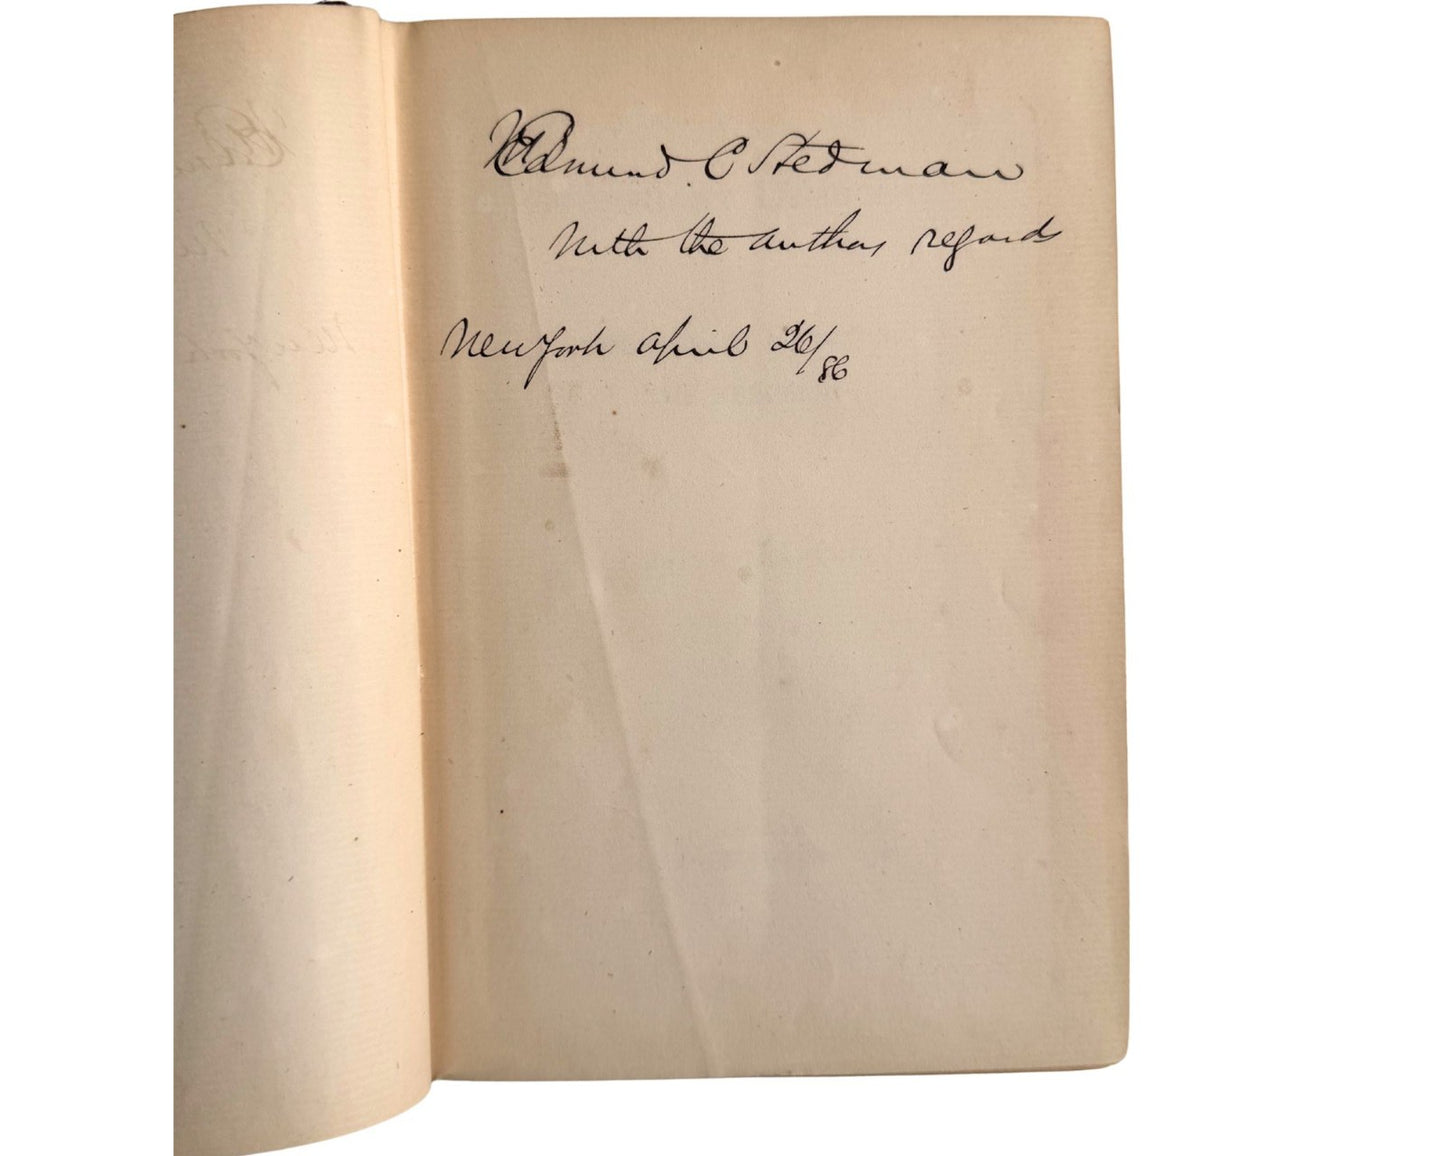 Edmund C Stedman
With the authors regards
New York April 26/86